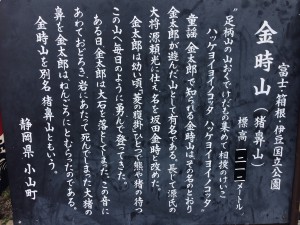 富士箱根伊豆国立公園
金時山(猪鼻山)
標高一二一二メートル
"足柄山の山おくでけだもの集めて相撲のけいこ
ハッケヨイヨイノコッタ ハッケヨイヨイノコッタ"
童謡 金太郎で知られる金時山はその名のとおり
金太郎が遊んだ山として有名である。長じて源氏の
大将源頼光に仕え名を坂田金時と改めた。
金太郎は幼い頃、菱の腹掛ひとつで熊や猪の待つ
この山へ毎日のように勇んで登ってきた。
ある日金太郎は大石を落としてしまった。この音に
あわておどろき、岩にあたって死んでしまった大猪の
鼻を金太郎はねんごろにとむらったのである。
金時山を別名 猪鼻山ともいう。
静岡県 小山町